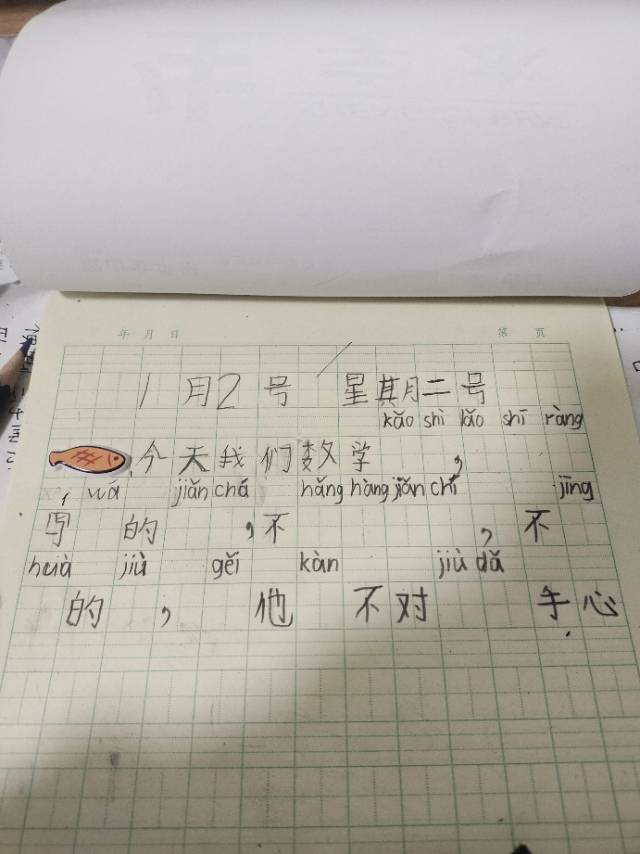 年 月 日 第 页
1月2号 星期二号
kǎo shì lǎo shī ràng
今天我们数学 ，
wǒ jiǎn chá hǎng hàng jiǎn chī jīng
写 的 ，不 ，不
huà jiù gěi kàn jiù dǎ
的 ， 他 不对 手心